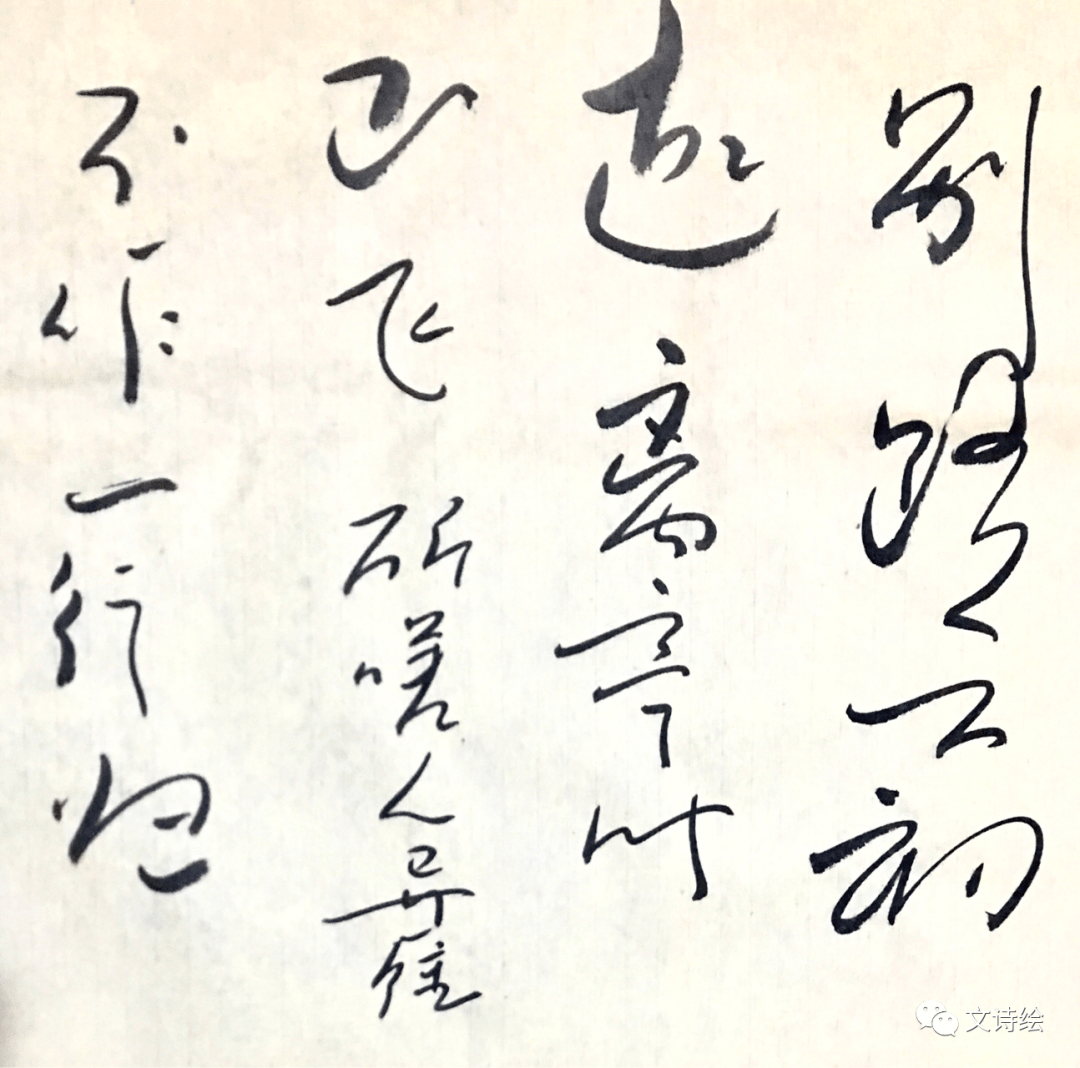 别路云初
起离亭叶
正飞所嗟人异雁
不作一行归
文诗绘